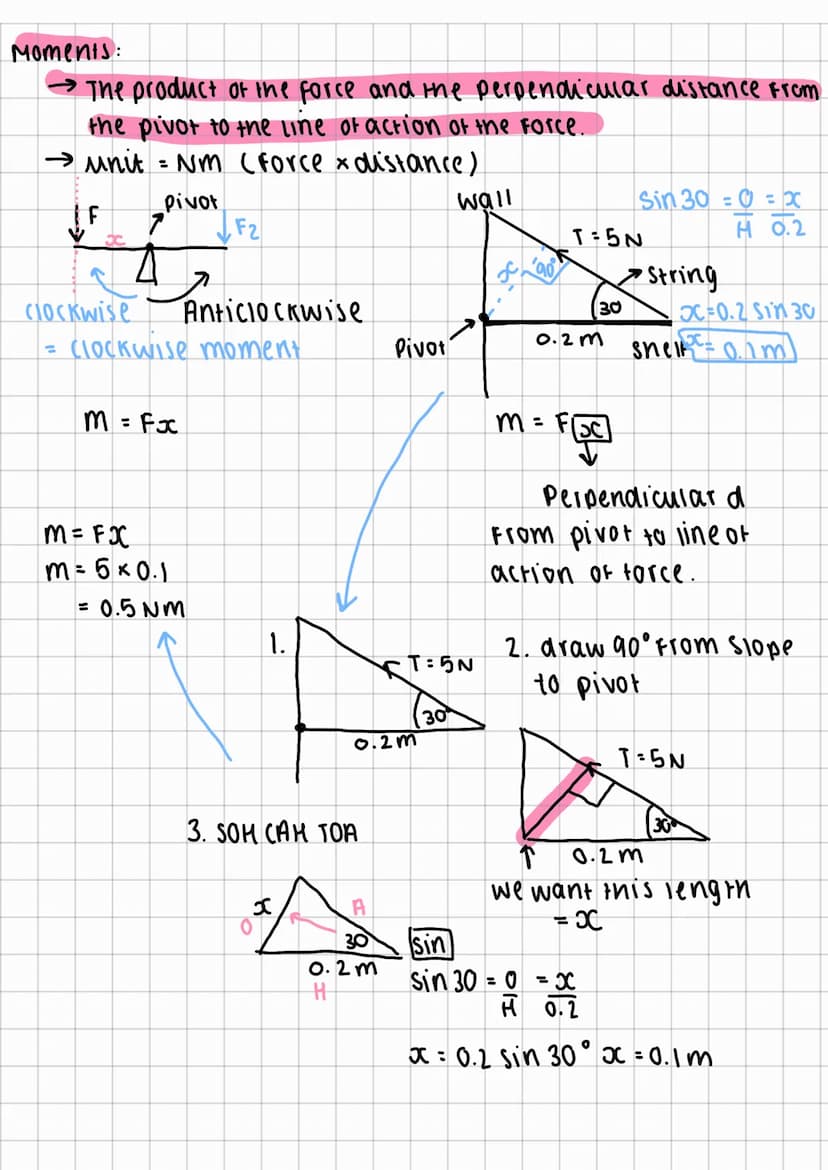 Moments:
→ The product of the force and the perpendicular distance from
the pivot to the line of action of the force.
→ unit = Nm (force × distance)
F
x
pivot
F2
clockwise
Anticlockwise
= clockwise moment
m = Fx
wall
T = 5N
String
x
90°
30
0.2m
Pivot
shelf
sin 30 = O/H = x/0.2
x = 0.2 sin 30
x = 0.1m
m = Fx
Perpendicular d
from pivot to line of
action of force.
m = Fx
m = 5 × 0.1
= 0.5 Nm
1.
T = 5N
30
0.2m
2. draw 90° from slope
to pivot
T = 5N
30°
0.2m
we want this length
= x
3. SOH CAH TOA
x
O
A
30
0.2m
H
sin
sin 30 = O/H = x/0.2
x = 0.2 sin 30° x = 0.1m